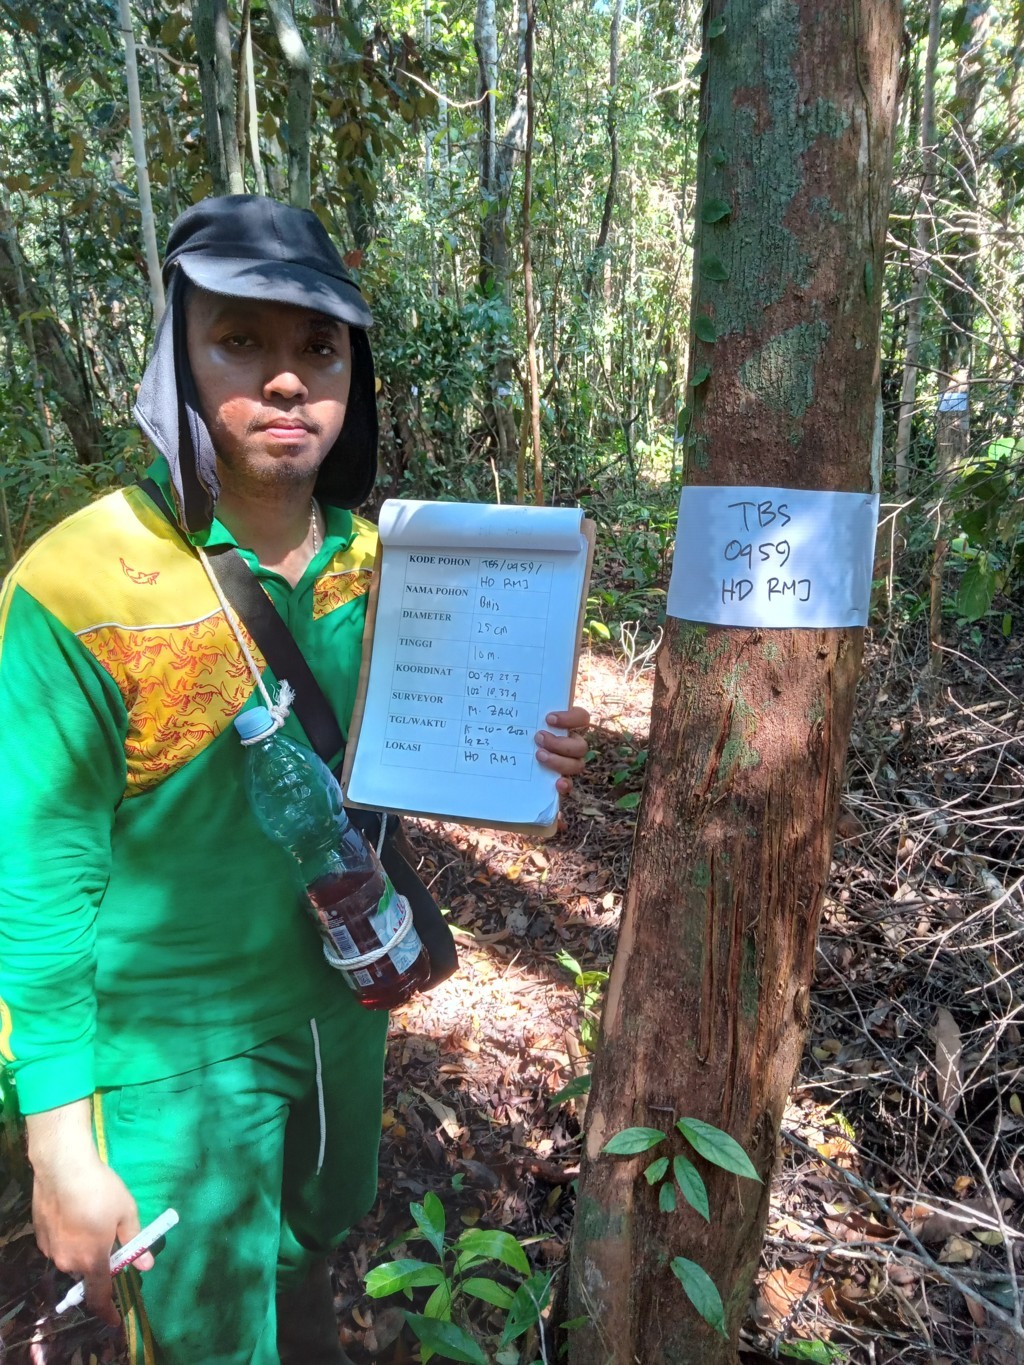 KODE POHON TBS/0959/
HD RMJ
NAMA POHON
DIAMETER 25 cm
TINGGI 10 M.
KOORDINAT 00° 47.
SURVEYOR M. ZAQI
TGL/WAKTU -10-2021
LOKASI HD RMJ
TBS
0959
HD RMJ